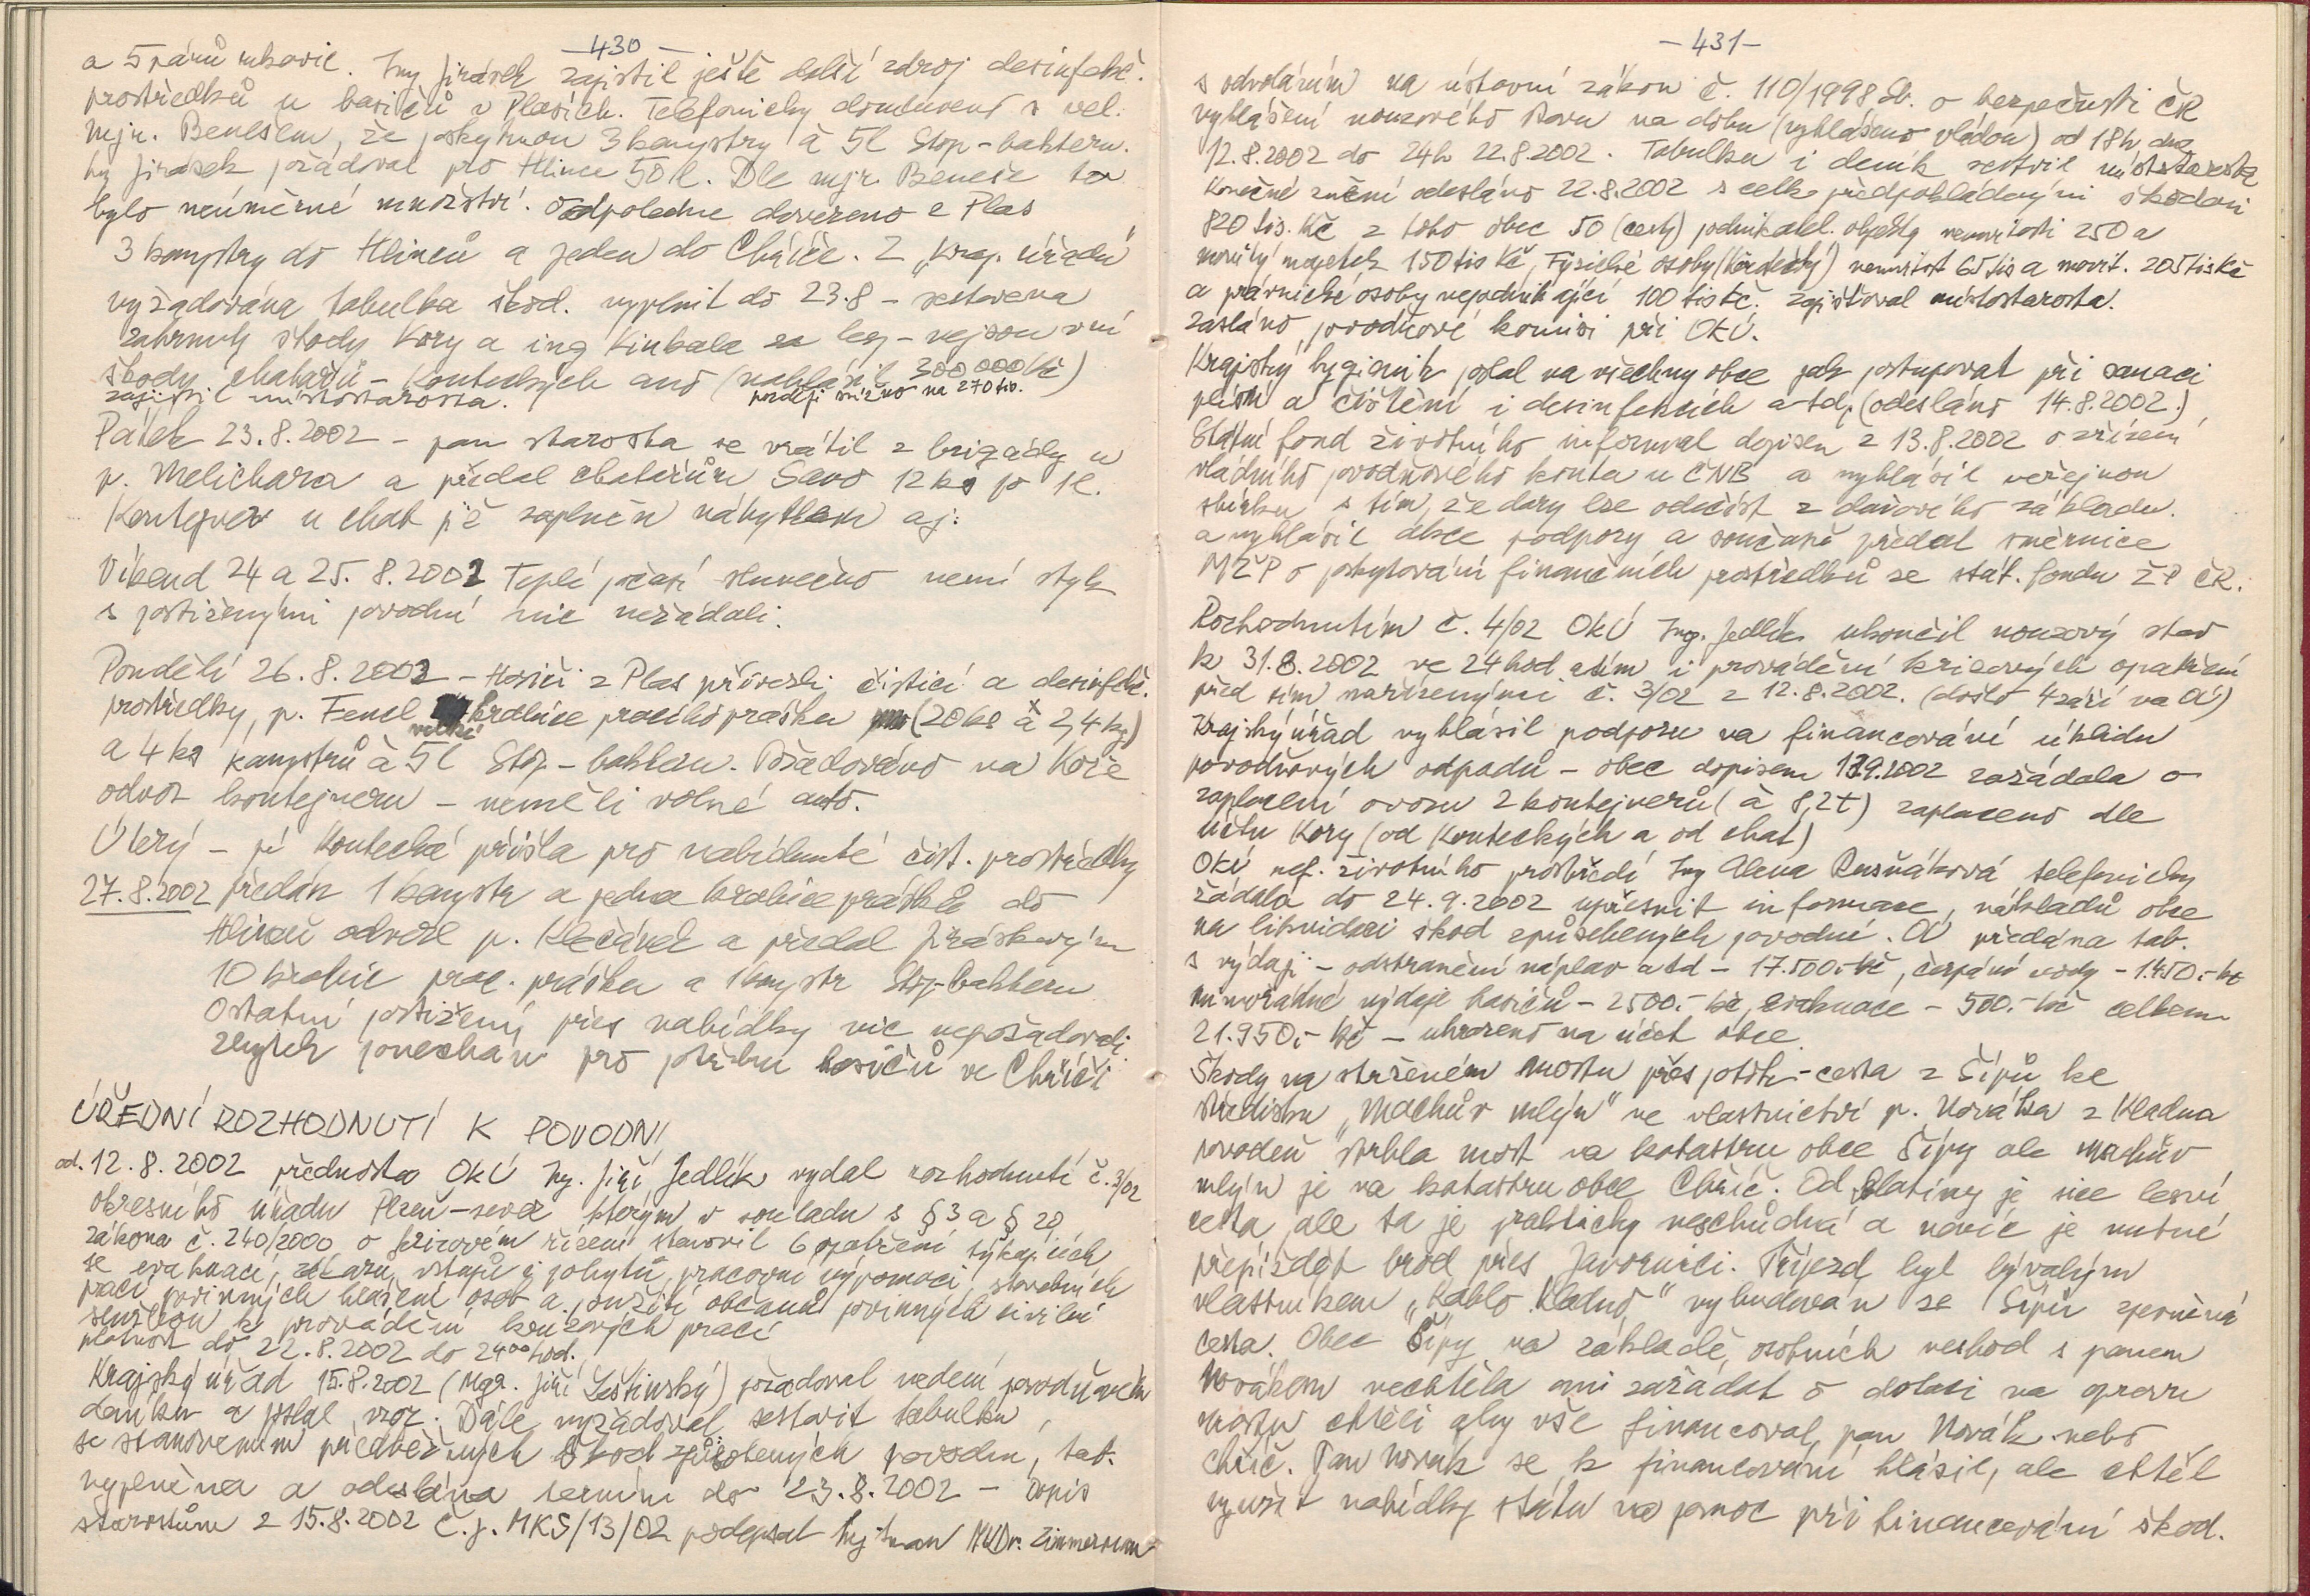 -430-
a 5 párů rukavic. Ing Jirásek zajistil ještě další zdroj desinfekč.
prostředků u hasičů v Plasích. Telefonicky domluveno s vel.
mjr. Benešem, že poskytnou 3 kanystry à 5l Stop-bakteru.
Ing Jirásek požadoval pro Hlince 50 l. Dle mjr. Beneše to
bylo neúměrné množství. Odpoledne dovezeno z Plas
3 kanystry do Hlinců a jeden do Chříče. Z „Kraj. úřadu"
vyžadována tabulka škod. vyplnit do 23.8 - sestavena
zahrnuty škody Kory a ing Kinkala za les - nejsou
škody chatařů - Kouteckých ano (nahlásil 300 000 Kč)
zajistil místostarosta. později sníženo na 270 tis.
Pátek 23.8.2002 - pan starosta se vrátil z brigády u
p. Melichara a předal chatařům Savo 12 ks po 1l.
Kontejner u chat již zaplněn nábytkem aj.
Víkend 24 a 25. 8. 2002 Teplé počasí slunečno není styk
s postiženými povodní nic nežádali.
Pondělí 26. 8. 2002 - Hasiči z Plas přivezli čisticí a desinfekč.
prostředky, p. Fencl krabice pracího prášku (20 ks à 2,4 kg)
velké
a 4 ks kanystrů à 5l Stop-bakteru. Požadováno na Koře
odvoz kontejneru - neměli volné auto.
Úterý - pí Koutecká přišla pro nabídnuté čist. prostředky
27.8.2002 předán 1 kanystr a jedna krabice prášků do
Hlinců odvezl p. Klečánek a předal Jiráskovým
10 krabic prac. prášku a 1 kanystr Stop-bakteru
Ostatní postižený přes nabídky nic nepožadovali.
zbytek ponechán pro potřebu hasičů ve Chříči
ÚŘEDNÍ ROZHODNUTÍ K POVODNI
od. 12. 8. 2002 přednosta OkÚ Ing. Jiří Jedlík vydal rozhodnutí č. 3/02
okresního úřadu Plzeň-sever kterým v souladu s § 3 a § 20
zákona č. 240/2000 o krizovém řízení stanovil 6 opatření týkajících
se evakuací, zákazu vstupů i pobytů, pracovní výpomoci, stavebních
prací povinných hlášení osob a použití občanů povinných civilní
službou k provádění krizových prací
platnost do 22.8.2002 do 24⁰⁰ hod.
Krajský úřad 15.8.2002 (Mgr. Jiří Leštinský) požadoval vedení povodňovém
deníku a poslal vzor. Dále vyžadoval sestavit tabulku
se stanovením předběžných škod způsobených povodní, tab.
vyplněna a odeslána termín do 23.8.2002 - Dopis
starostům z 15.8.2002 č.j. MKS/13/02 podepsal hejtman MUDr. Zimmermann
-431-
s odvoláním na ústavní zákon č. 110/1998 Sb. o bezpečnosti ČR
vyhlášení nouzového stavu na dobu (vyhlášeno vládou) od 18h, dne
12.8.2002 do 24h 22.8.2002. Tabulku i deník sestavil místostarosta
Konečné znění odesláno 22.8.2002 s celk. předpokládanými škodami
820 tis. Kč z toho obec 50 (cesty) podnikatel. objekty nemovitosti 250 a
movitý majetek 150 tis Kč, Fyzické osoby (Koutecký) nemovitost 65 tis a movit. 205 tis Kč
a právnické osoby nepodnikající 100 tis Kč. zajišťoval místostarosta.
Zasláno povodňové komisi při OkÚ.
Krajský hygienik poslal na všechny obce jak postupovat při sanaci
plísní a čištění i desinfekcích atd. (odesláno 14.8.2002.)
Státní fond životního informoval dopisem z 13.8.2002 o zřízení
vládního povodňového konta u ČNB a vyhlásil veřejnou
sbírku s tím, že dary lze odečíst z daňového základu.
a vyhlásil akce podpory a současně předal směrnice
MŽP o poskytování finančních prostředků ze stát. fondu ŽP ČR.
Rozhodnutím č. 4/02 OkÚ Ing. Jedlík ukončil nouzový stav
k 31.8.2002 ve 24 hod a tím i provádění krizových opatření
před tím nařízenými č. 3/02 z 12.8.2002. (došlo 4 září na OÚ)
Krajský úřad vyhlásil podporu na financování úklidu
povodňových odpadů - obec dopisem 9.2002 zažádala o
zaplacení ovozu 2 kontejnerů (à 8,2t) zaplaceno dle
účtu Kory (od Kouteckých a od chat)
OkÚ, ref. životního prostředí Ing Alena Rusňáková telefonicky
žádala do 24.9.2002 upřesnit informace, nákladů obce
na likvidaci škod způsobených povodní. OÚ předána tab.
s výdaji - odstranění náplav atd - 17.500.- Kč, čerpání vody - 1.450.- Kč
mimořádné výdaje hasičů - 2500.- Kč, evakuace - 500.- Kč celkem
21.950.- Kč - uhrazeno na účet obce.
Škody na strženém mostu přes potok - cesta z Šípů ke
středisku „Machův mlýn" ve vlastnictví p. Nováka z Kladna
povodeň strhla most na katastru obce Šípy ale Machův
mlýn je na katastru obce Chříč. Od Slatiny je sice lesní
cesta, ale ta je prakticky neschůdná a navíc je nutné
přejíždět brod přes Javornici. Příjezd byl bývalým
vlastníkem „Kablo Kladno" vybudován ze Šípů zpevněná
cesta. Obec Šípy na základě osobních neshod s panem
Novákem nechtěla ani zažádat o dotaci na opravu
mostu chtěli aby vše financoval pan Novák nebo
Chříč. Pan Novák se k financování hlásil, ale chtěl
využít nabídky státu na pomoc při financování škod.